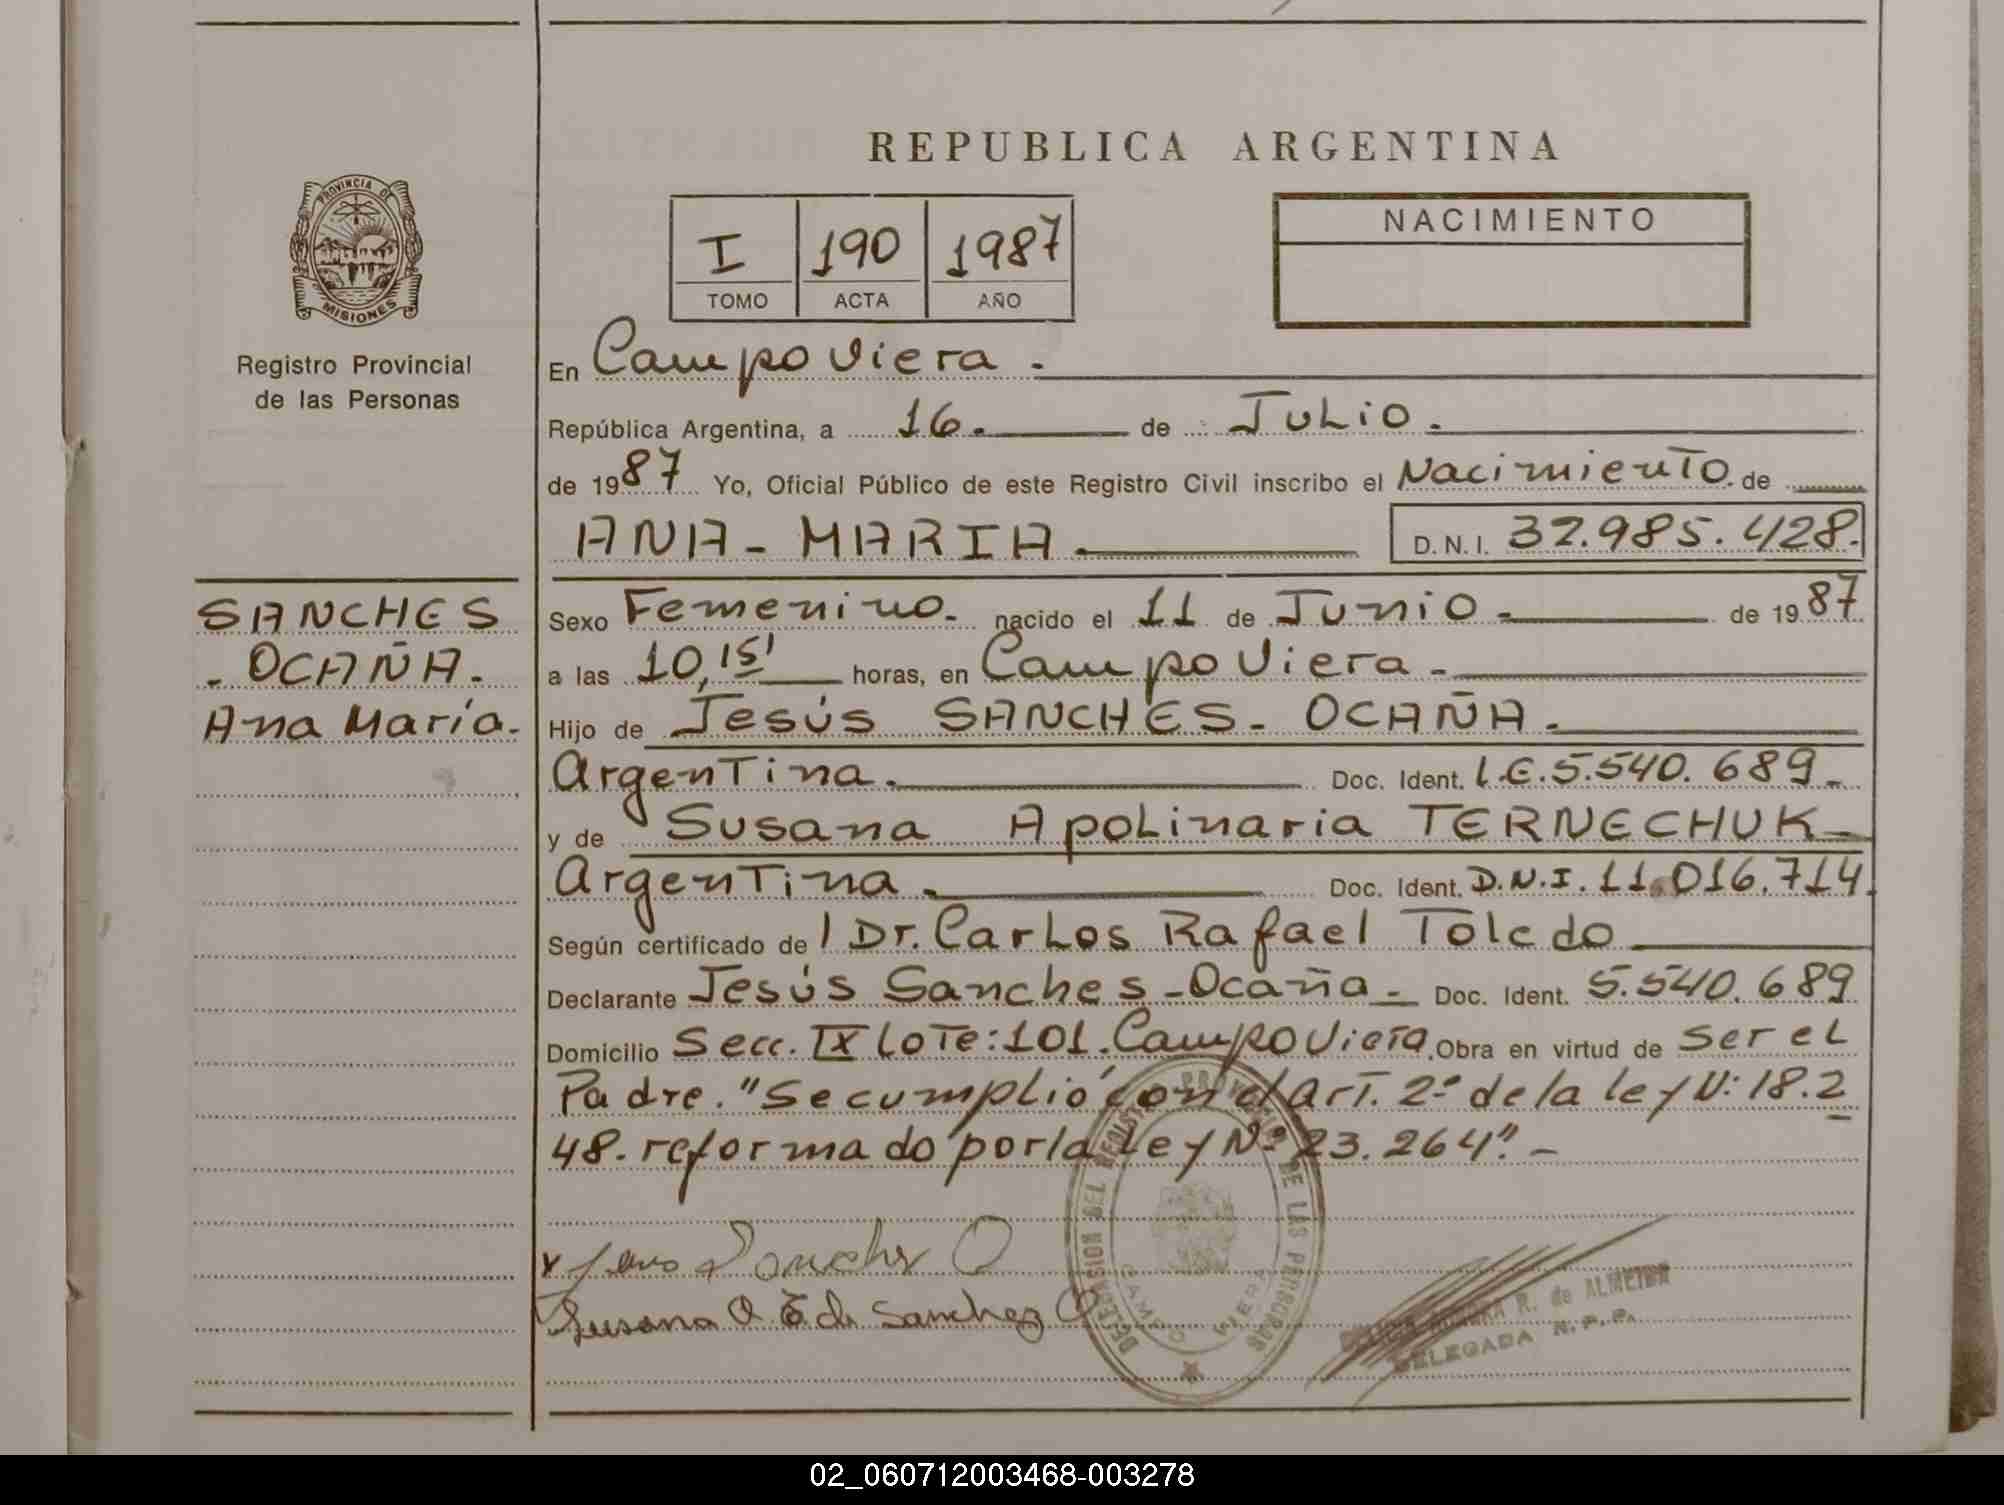 REPUBLICA ARGENTINA
PROVINCIA DE
MISIONES
Registro Provincial
de las Personas
I 190 1987
TOMO ACTA AÑO
NACIMIENTO
En Campo Viera.
República Argentina, a 16. de Julio.
de 1987 Yo, Oficial Público de este Registro Civil inscribo el Nacimiento. de
ANA-MARIA D.N.I. 32.985.428.
SANCHES
-OCAÑA.
Ana María.
Sexo Femenino. nacido el 11 de Junio. de 1987
a las 10,15' horas, en Campo Viera.
Hijo de Jesús SANCHES-OCAÑA.
Argentina. Doc. Ident. L.E.5.540.689.
y de Susana Apolinaria TERNECHUK
Argentina. Doc. Ident. D.N.I.11.016.714.
Según certificado de l Dr. Carlos Rafael Toledo
Declarante Jesús Sanches-Ocaña. Doc. Ident. 5.540.689
Domicilio Secc. IX Lote:101.Campo Viera. Obra en virtud de ser el
Padre. "Se cumplió con el Art. 2º de la ley N: 18.2
48. reformado por la Ley Nº 23.264".-
x Sanches O
Susana A de Sanchez O
DELEGACION DEL REGISTRO PROVINCIAL DE LAS PERSONAS
CAMPO VIERA
R. de ALMEIDA
DELEGADA R.P.P.
02_060712003468-003278